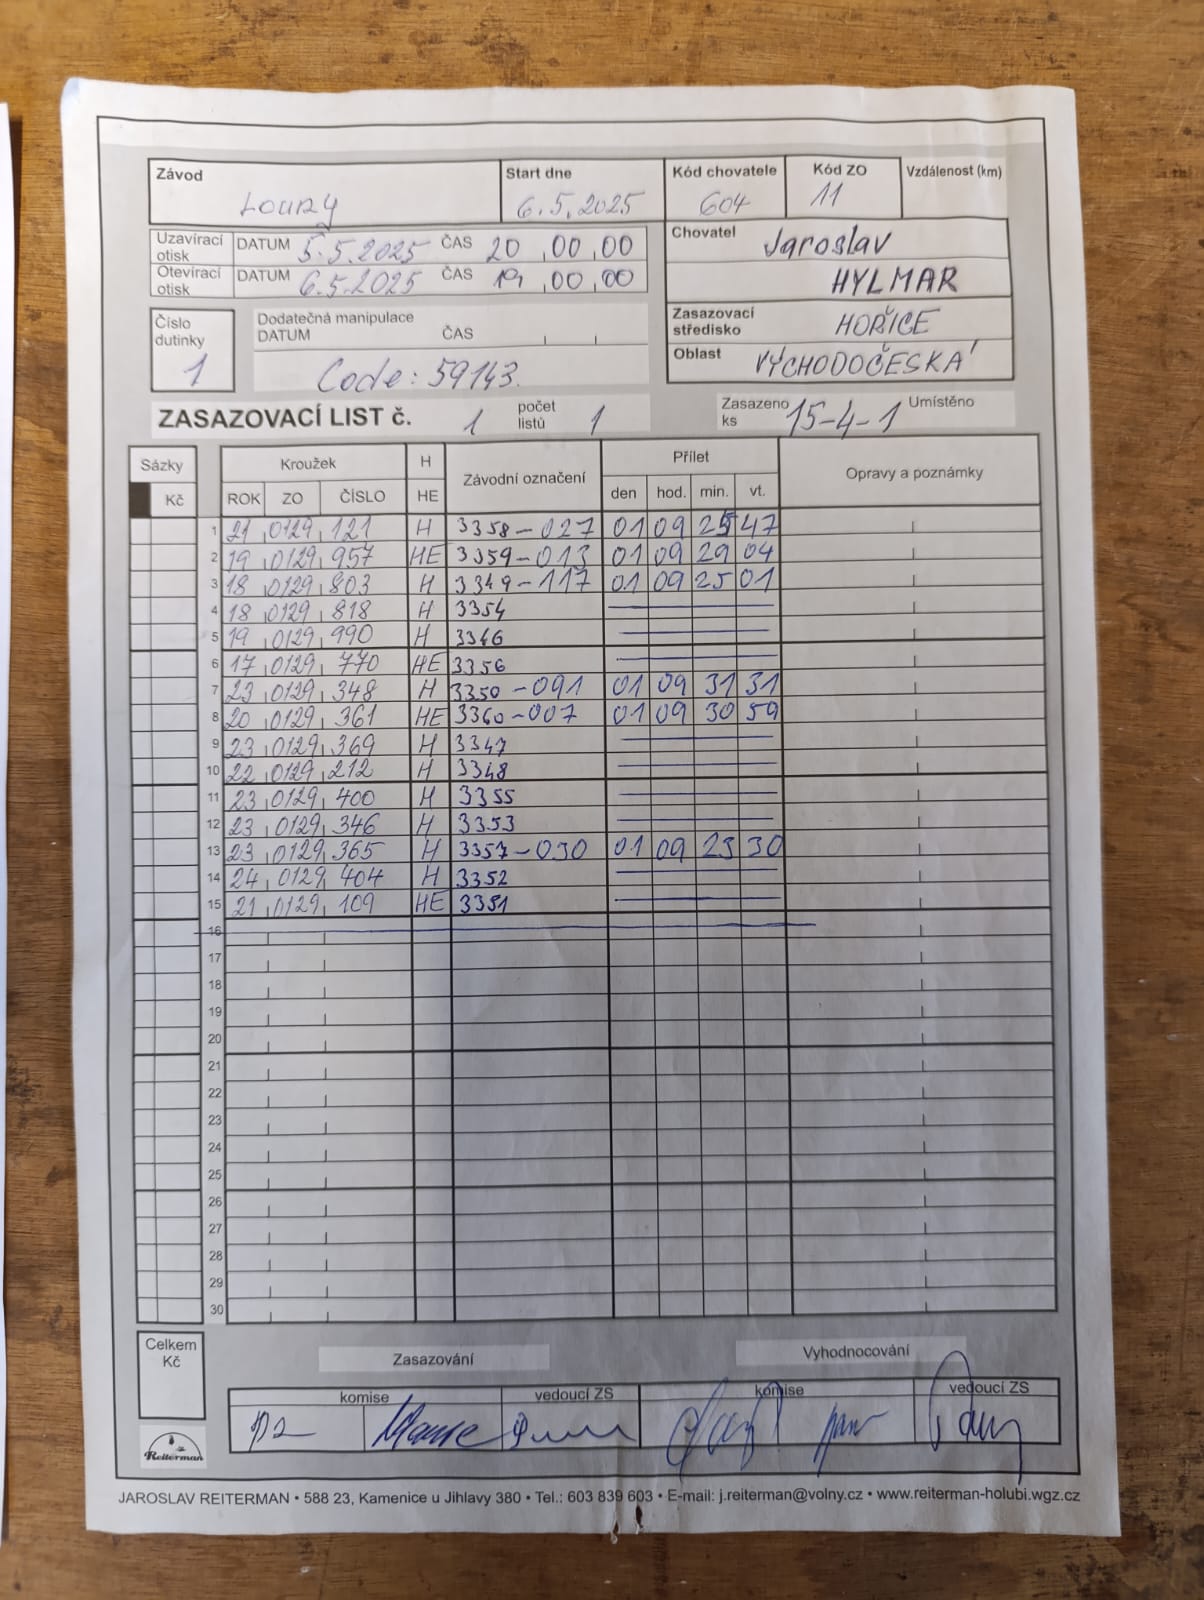 Závod Louny Start dne 6.5.2025 Kód chovatele 604 Kód ZO 11 Vzdálenost (km)
Uzavírací otisk DATUM 5.5.2025 ČAS 20,00,00
Otevírací otisk DATUM 6.5.2025 ČAS 19,00,00
Chovatel Jaroslav
HYLMAR
Číslo dutinky 1
Dodatečná manipulace
DATUM ČAS
Code: 59143.
Zasazovací středisko HOŘICE
Oblast VÝCHODOČESKÁ
ZASAZOVACÍ LIST č. 1 počet listů 1 Zasazeno ks 15-4-1 Umístěno
Sázky Kroužek H Závodní označení Přílet Opravy a poznámky
Kč ROK ZO ČÍSLO HE den hod. min. vt.
1 21 0129 121 H 3358-027 01 09 25 47
2 19 0129 957 HE 3359-013 01 09 29 04
3 18 0129 803 H 3349-117 01 09 25 01
4 18 0129 818 H 3354
5 19 0129 990 H 3346
6 17 0129 770 HE 3356
7 23 0129 348 H 3350-091 01 09 31 31
8 20 0129 361 HE 3360-007 01 09 30 59
9 23 0129 369 H 3347
10 22 0129 212 H 3348
11 23 0129 400 H 3355
12 23 0129 346 H 3353
13 23 0129 365 H 3357-030 01 09 23 30
14 24 0129 404 H 3352
15 21 0129 109 HE 3351
16
17
18
19
20
21
22
23
24
25
26
27
28
29
30
Celkem Kč
Zasazování Vyhodnocování
komise vedoucí ZS komise vedoucí ZS
Reiterman
JAROSLAV REITERMAN • 588 23, Kamenice u Jihlavy 380 • Tel.: 603 839 603 • E-mail: j.reiterman@volny.cz • www.reiterman-holubi.wgz.cz